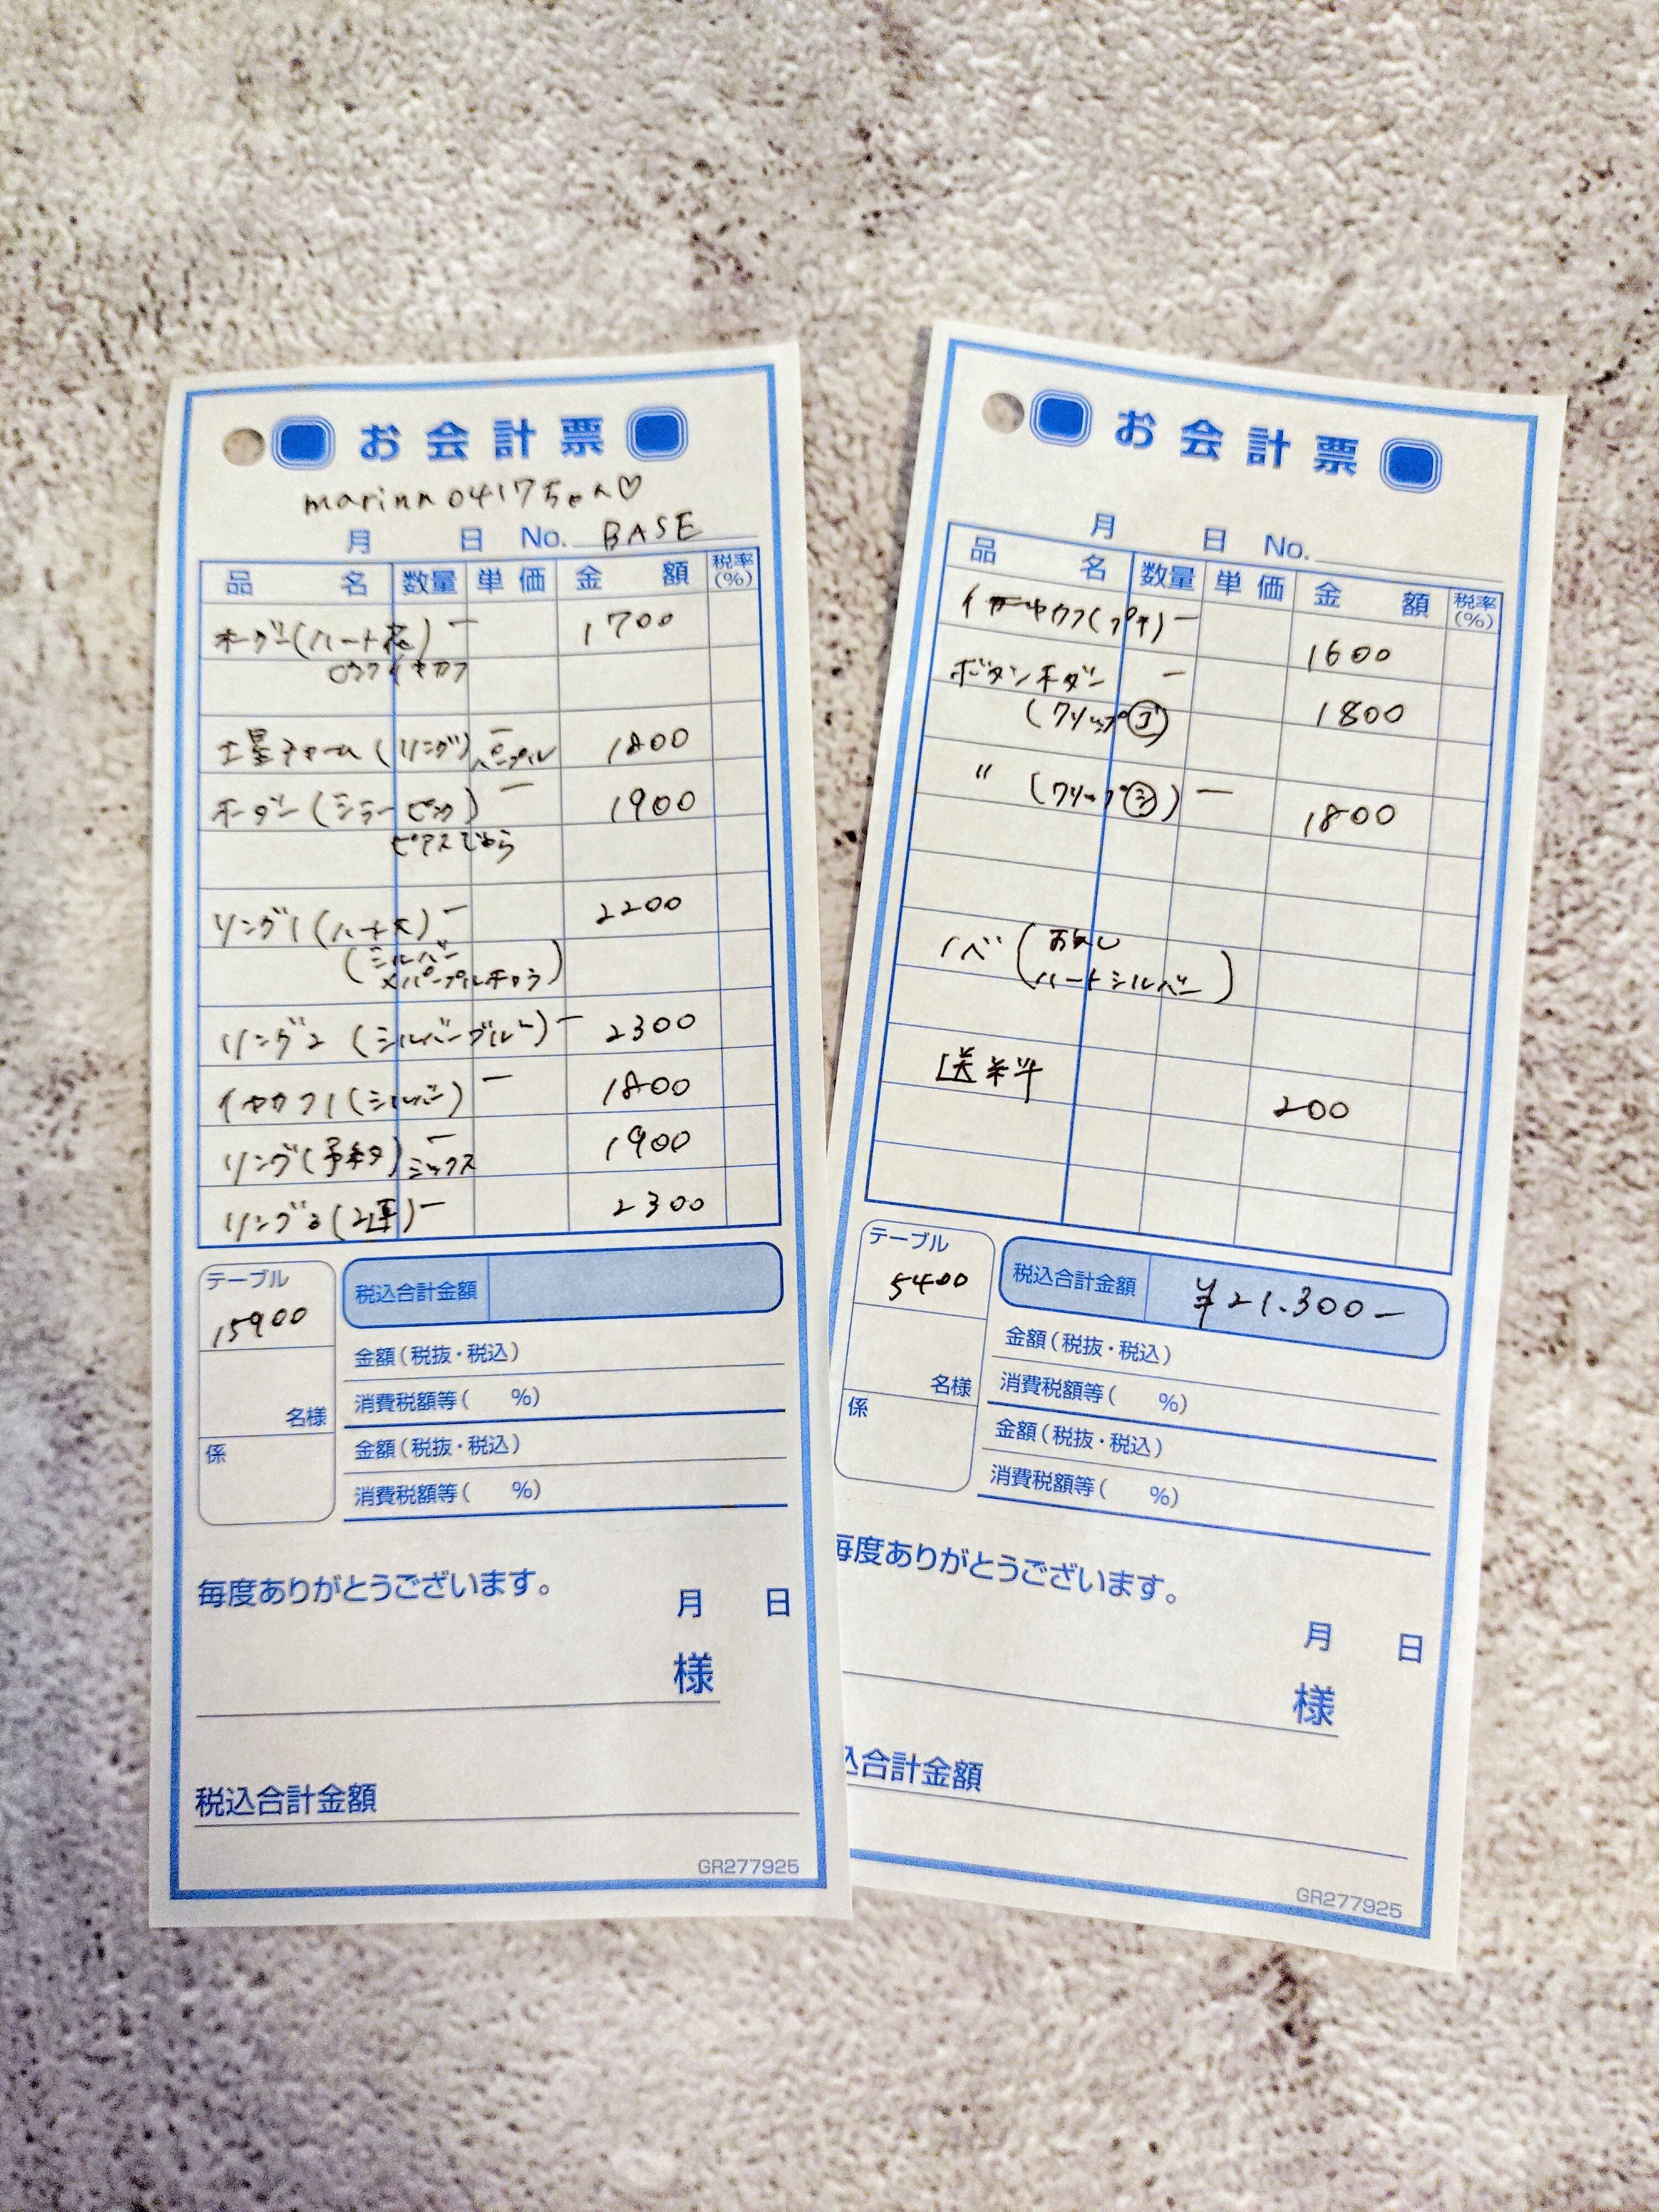 お会計票
marinn0417ちゃん♡
月 日 No. BASE
品名 数量 単価 金額 税率(%)
オーダー(ハート花) 一 1700
イヤカフ
土星チャーム(リング) 一 パープル 1800
オーダー(ミラーピンク) 一 1900
ピアス
リング1(ハート大) 一 2200
(シルバー
×パープルキャラ)
リング2(シルバーブルー) 一 2300
イヤカフ1(シルバー) 一 1800
リング(予約) 一 ミックス 1900
リング3(2連) 一 2300
テーブル
15900
名様
係
税込合計金額
金額(税抜・税込)
消費税額等( %)
金額(税抜・税込)
消費税額等( %)
毎度ありがとうございます。
月 日
様
税込合計金額
GR277925
お会計票
月 日 No.
品名 数量 単価 金額 税率(%)
イヤーカフ(プチ) 一 1600
ボタンオーダー 一
(クリップゴ) 1800
〃 (クリップシ) 一 1800
ノベ(
ハートシルバー)
送料 200
テーブル
5400
名様
係
税込合計金額 ¥21.300-
金額(税抜・税込)
消費税額等( %)
金額(税抜・税込)
消費税額等( %)
毎度ありがとうございます。
月 日
様
込合計金額
GR277925